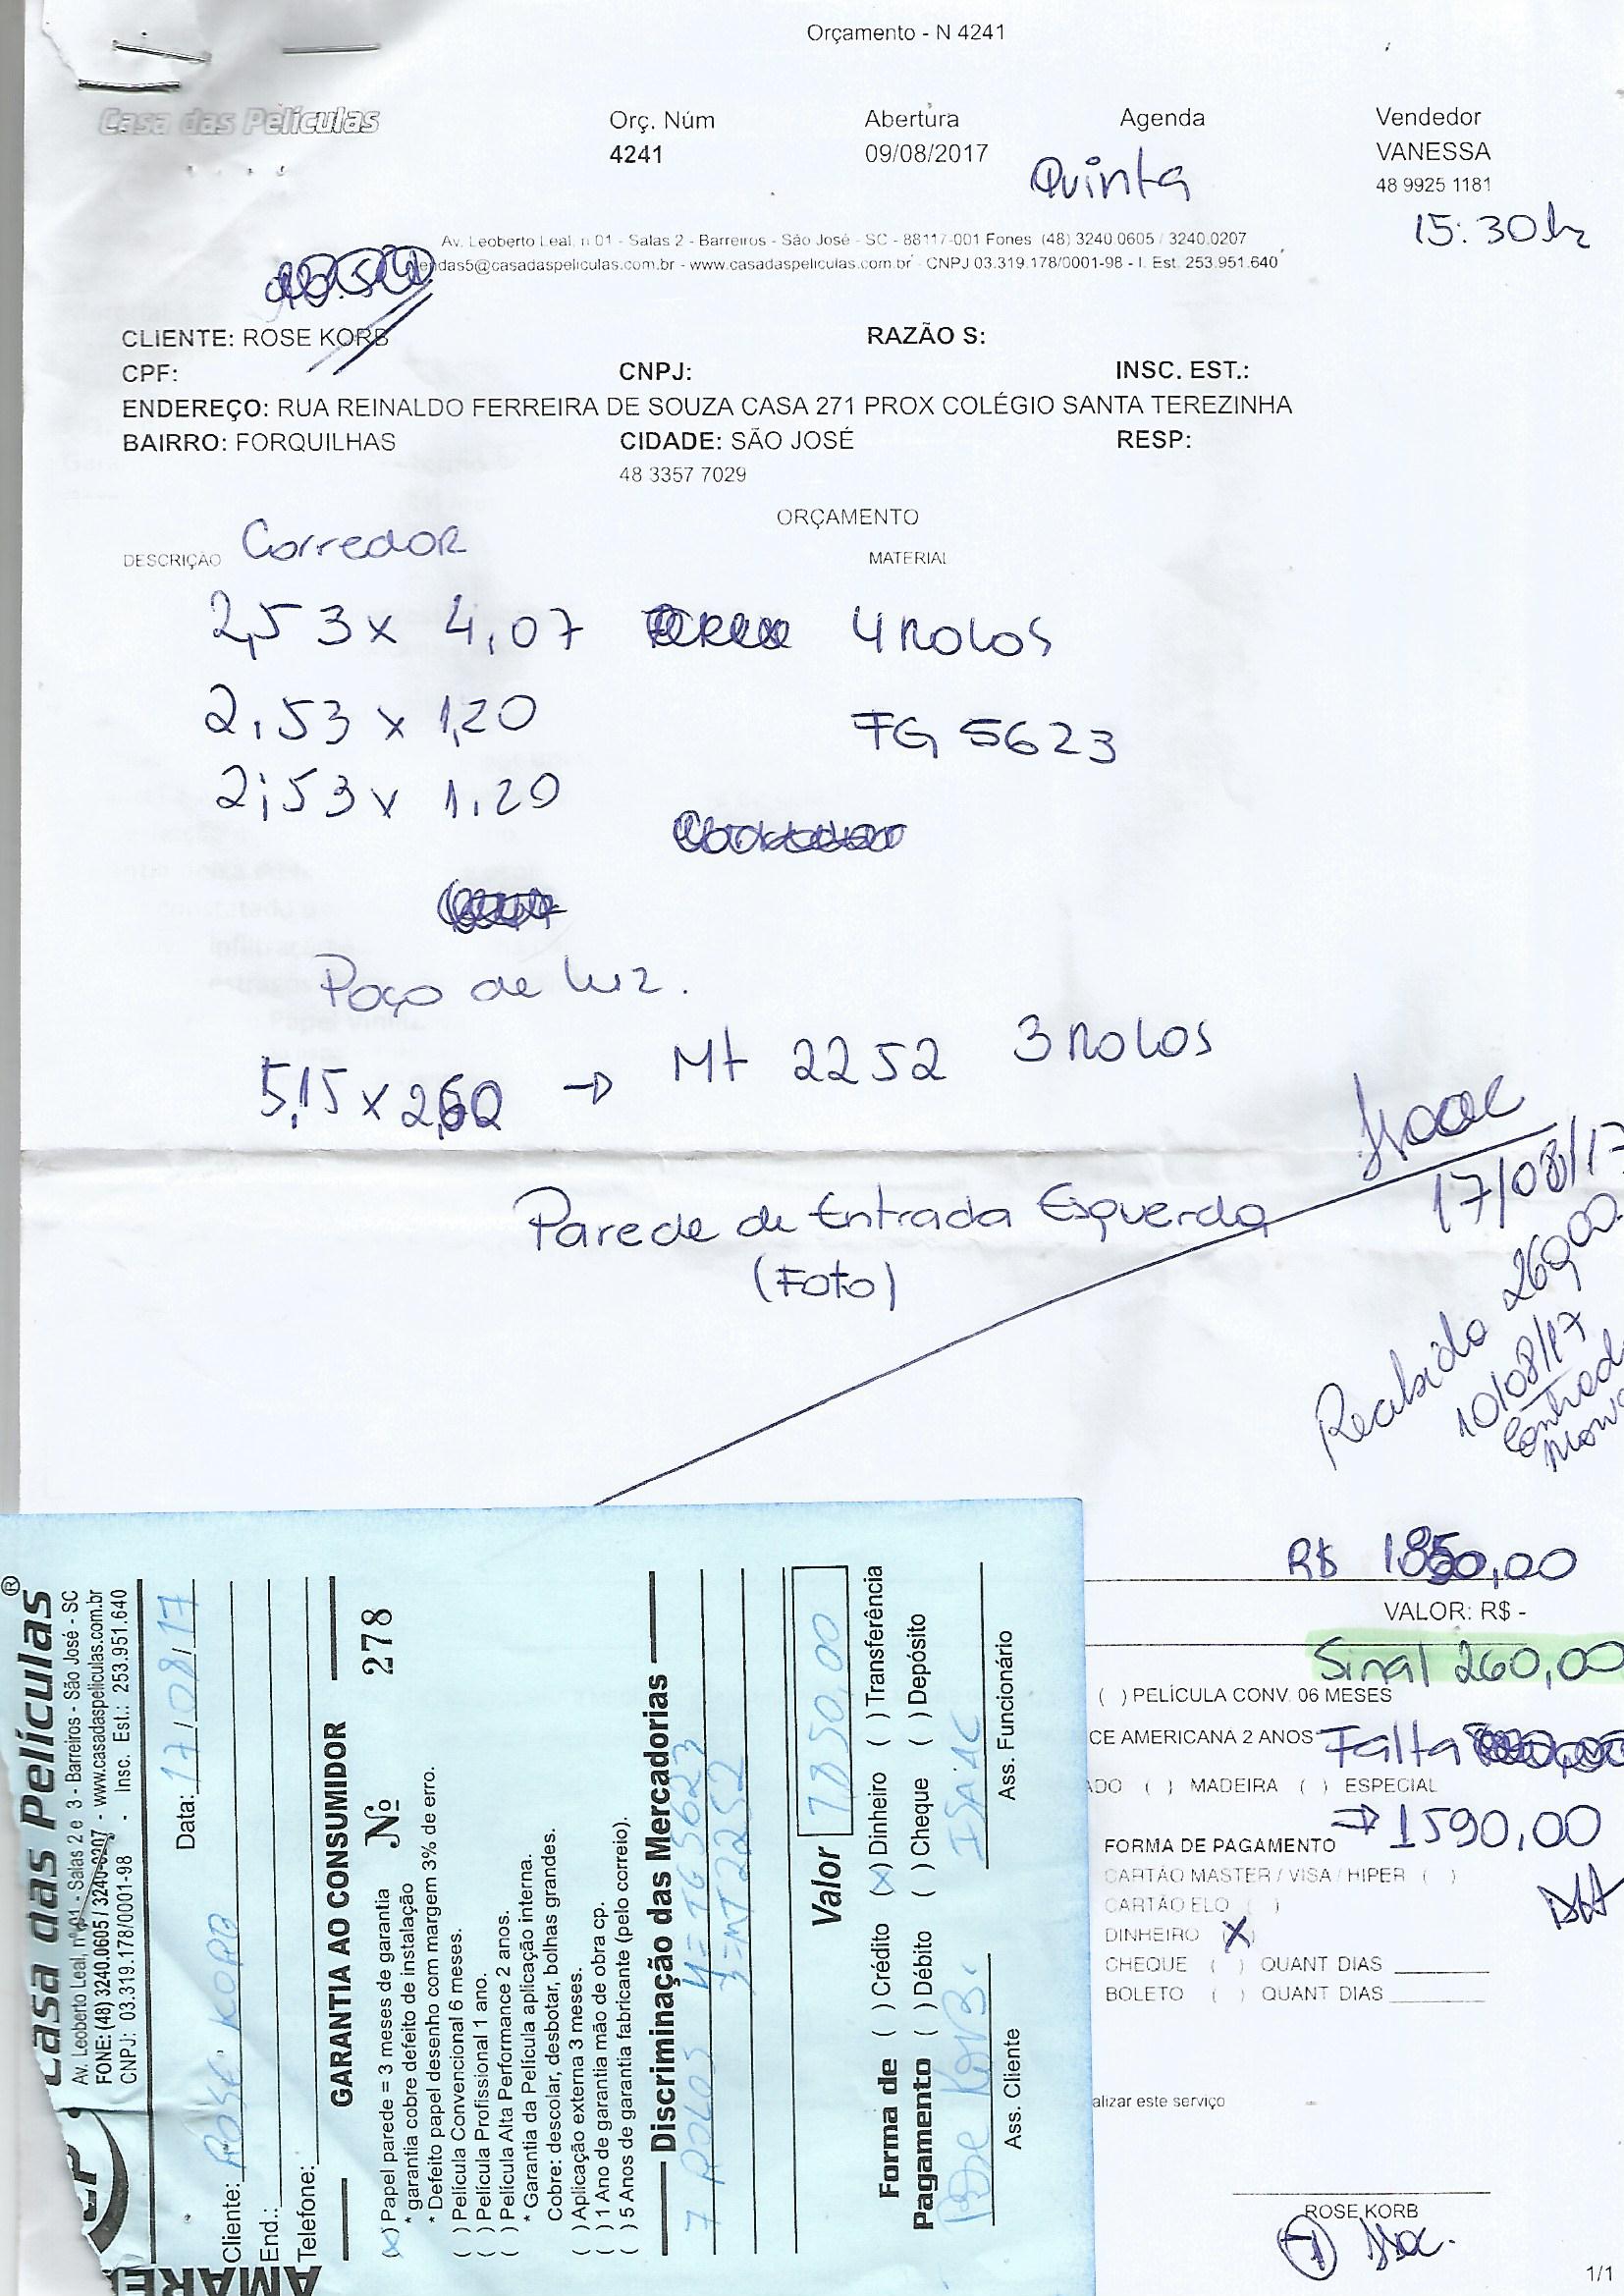 Orçamento - N 4241
Casa das Películas
Orç. Núm
4241
Abertura
09/08/2017
Agenda
Quinta
Vendedor
VANESSA
48 9925 1181
15:30h
Av. Leoberto Leal, n 01 - Salas 2 - Barreiros - São José - SC - 88117-001 Fones (48) 3240.0605 / 3240.0207
endas5@casadaspeliculas.com.br - www.casadaspeliculas.com.br - CNPJ 03.319.178/0001-98 - I. Est. 253.951.640
CLIENTE: ROSE KORB RAZÃO S:
CPF: CNPJ: INSC. EST.:
ENDEREÇO: RUA REINALDO FERREIRA DE SOUZA CASA 271 PROX COLÉGIO SANTA TEREZINHA
BAIRRO: FORQUILHAS CIDADE: SÃO JOSÉ RESP:
48 3357 7029
ORÇAMENTO
DESCRIÇÃO Corredor MATERIAL
2,53 x 4,07 4 Rolos
2,53 x 1,20 FG 5623
2,53 x 1,20
Poço de luz.
5,15 x 2,60 → Mt 2252 3 Rolos
Isaac
17/08/17
Parede de Entrada Esquerda
(Foto)
Recebido 260,00
10/08/17
R$ 1850,00
VALOR: R$ -
Sinal 260,00
( ) PELÍCULA CONV. 06 MESES
CE AMERICANA 2 ANOS Falta
ADO ( ) MADEIRA ( ) ESPECIAL
→ 1590,00
FORMA DE PAGAMENTO
CARTÃO MASTER / VISA / HIPER ( )
CARTÃO ELO ( )
DINHEIRO (X)
CHEQUE ( ) QUANT DIAS
BOLETO ( ) QUANT DIAS
alizar este serviço
ROSE KORB
1/1
Casa das Películas®
Av. Leoberto Leal, nº 01 - Salas 2 e 3 - Barreiros - São José - SC
FONE: (48) 3240.0605 / 3240-0207 - www.casadaspeliculas.com.br
CNPJ: 03.319.178/0001-98 - Insc. Est.: 253.951.640
Data: 17/08/17
Cliente: ROSE KORB
End.:
Telefone:
GARANTIA AO CONSUMIDOR
(x) Papel parede = 3 meses de garantia Nº 278
* garantia cobre defeito de instalação
* Defeito papel desenho com margem 3% de erro.
( ) Película Convencional 6 meses.
( ) Película Profissional 1 ano.
( ) Película Alta Performance 2 anos.
* Garantia da Película aplicação interna.
Cobre: descolar, desbotar, bolhas grandes.
( ) Aplicação externa 3 meses.
( ) 1 Ano de garantia mão de obra cp.
( ) 5 Anos de garantia fabricante (pelo correio).
Discriminação das Mercadorias
7 ROLOS 4= TG5623
3=MT2252
Valor 1850,00
Forma de Pagamento
( ) Crédito (x) Dinheiro ( ) Transferência
( ) Débito ( ) Cheque ( ) Depósito
Rose Korb. ISAAC
Ass. Cliente Ass. Funcionário